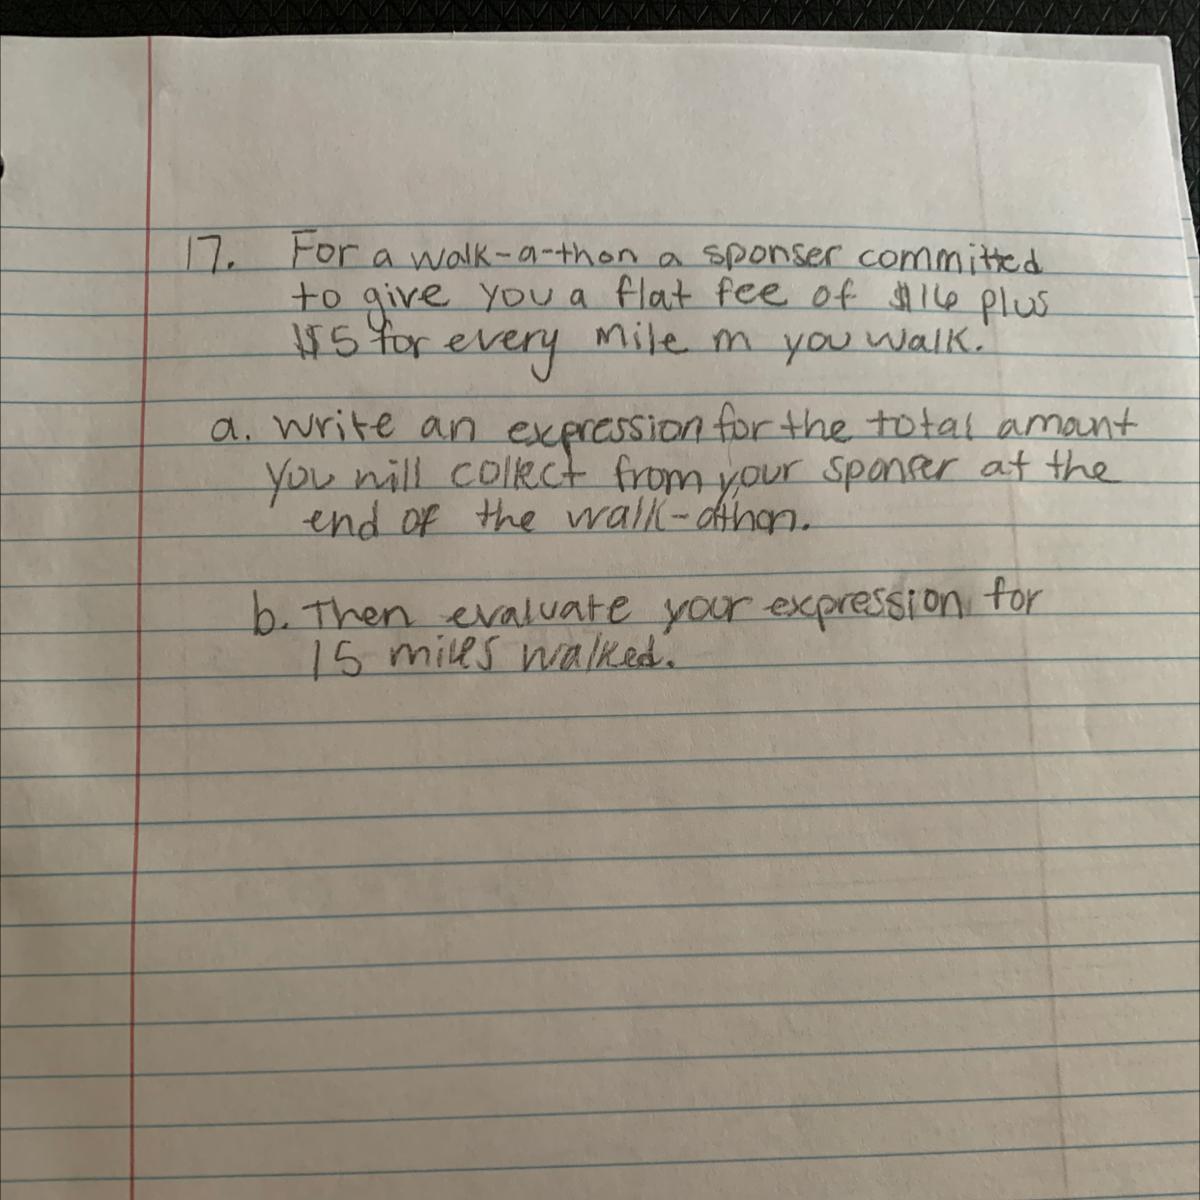 17. For a walk-a-thon a sponser committed
to give you a flat fee of $16 plus
$5 for every mile m you walk.
a. write an expression for the total amount
you will collect from your sponser at the
end of the walk-athon.
b. Then evaluate your expression for
15 miles walked.